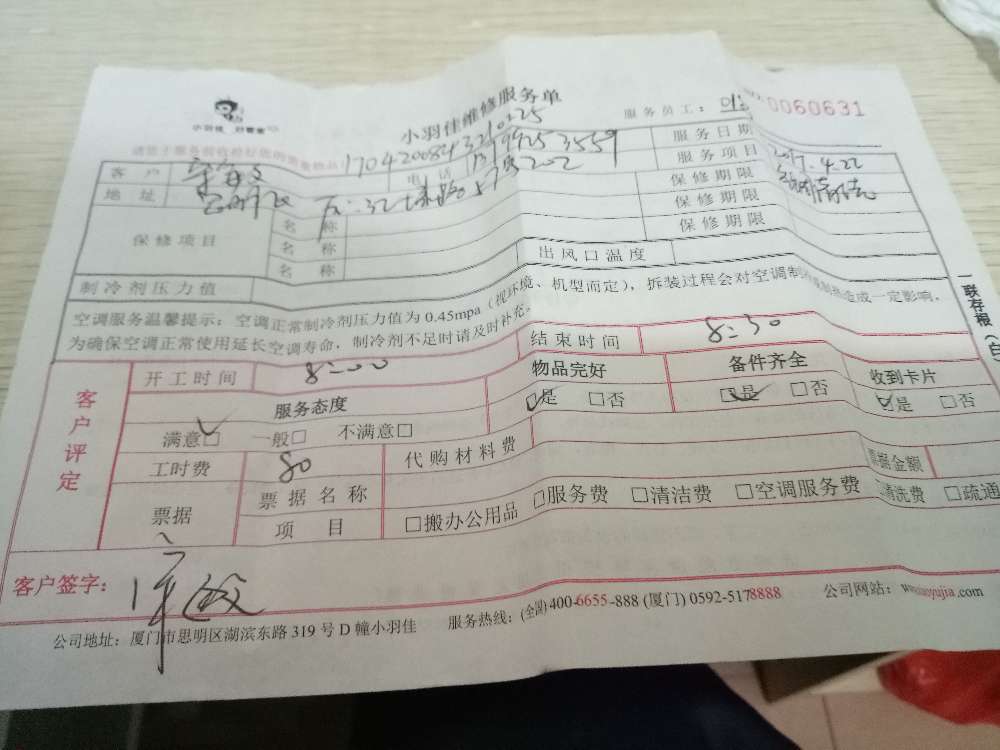 小羽佳 好管家
小羽佳维修服务单
服务员工:
0060631
17042008432
客户
电话
13799253559
服务日期
2017.4.22
地址
57号202
服务项目
保修项目
名称
保修期限
名称
保修期限
名称
保修期限
制冷剂压力值
出风口温度
空调服务温馨提示:空调正常制冷剂压力值为 0.45mpa(视环境、机型而定),拆装过程会对空调制造成一定影响,
为确保空调正常使用延长空调寿命,制冷剂不足时请及时补充。
一联存根(白
客户评定
开工时间
8:00
结束时间
8:30
服务态度
物品完好
备件齐全
收到卡片
满意□ 一般□ 不满意□
□是 □否
□是 □否
□是 □否
工时费
80
代购材料费
票据金额
票据
票据名称
项目
□搬办公用品 □服务费 □清洁费 □空调服务费 清洗费 □疏通
客户签字:
公司地址:厦门市思明区湖滨东路 319 号 D 幢小羽佳 服务热线:(全国) 400-6655-888 (厦门) 0592-5178888 公司网站: